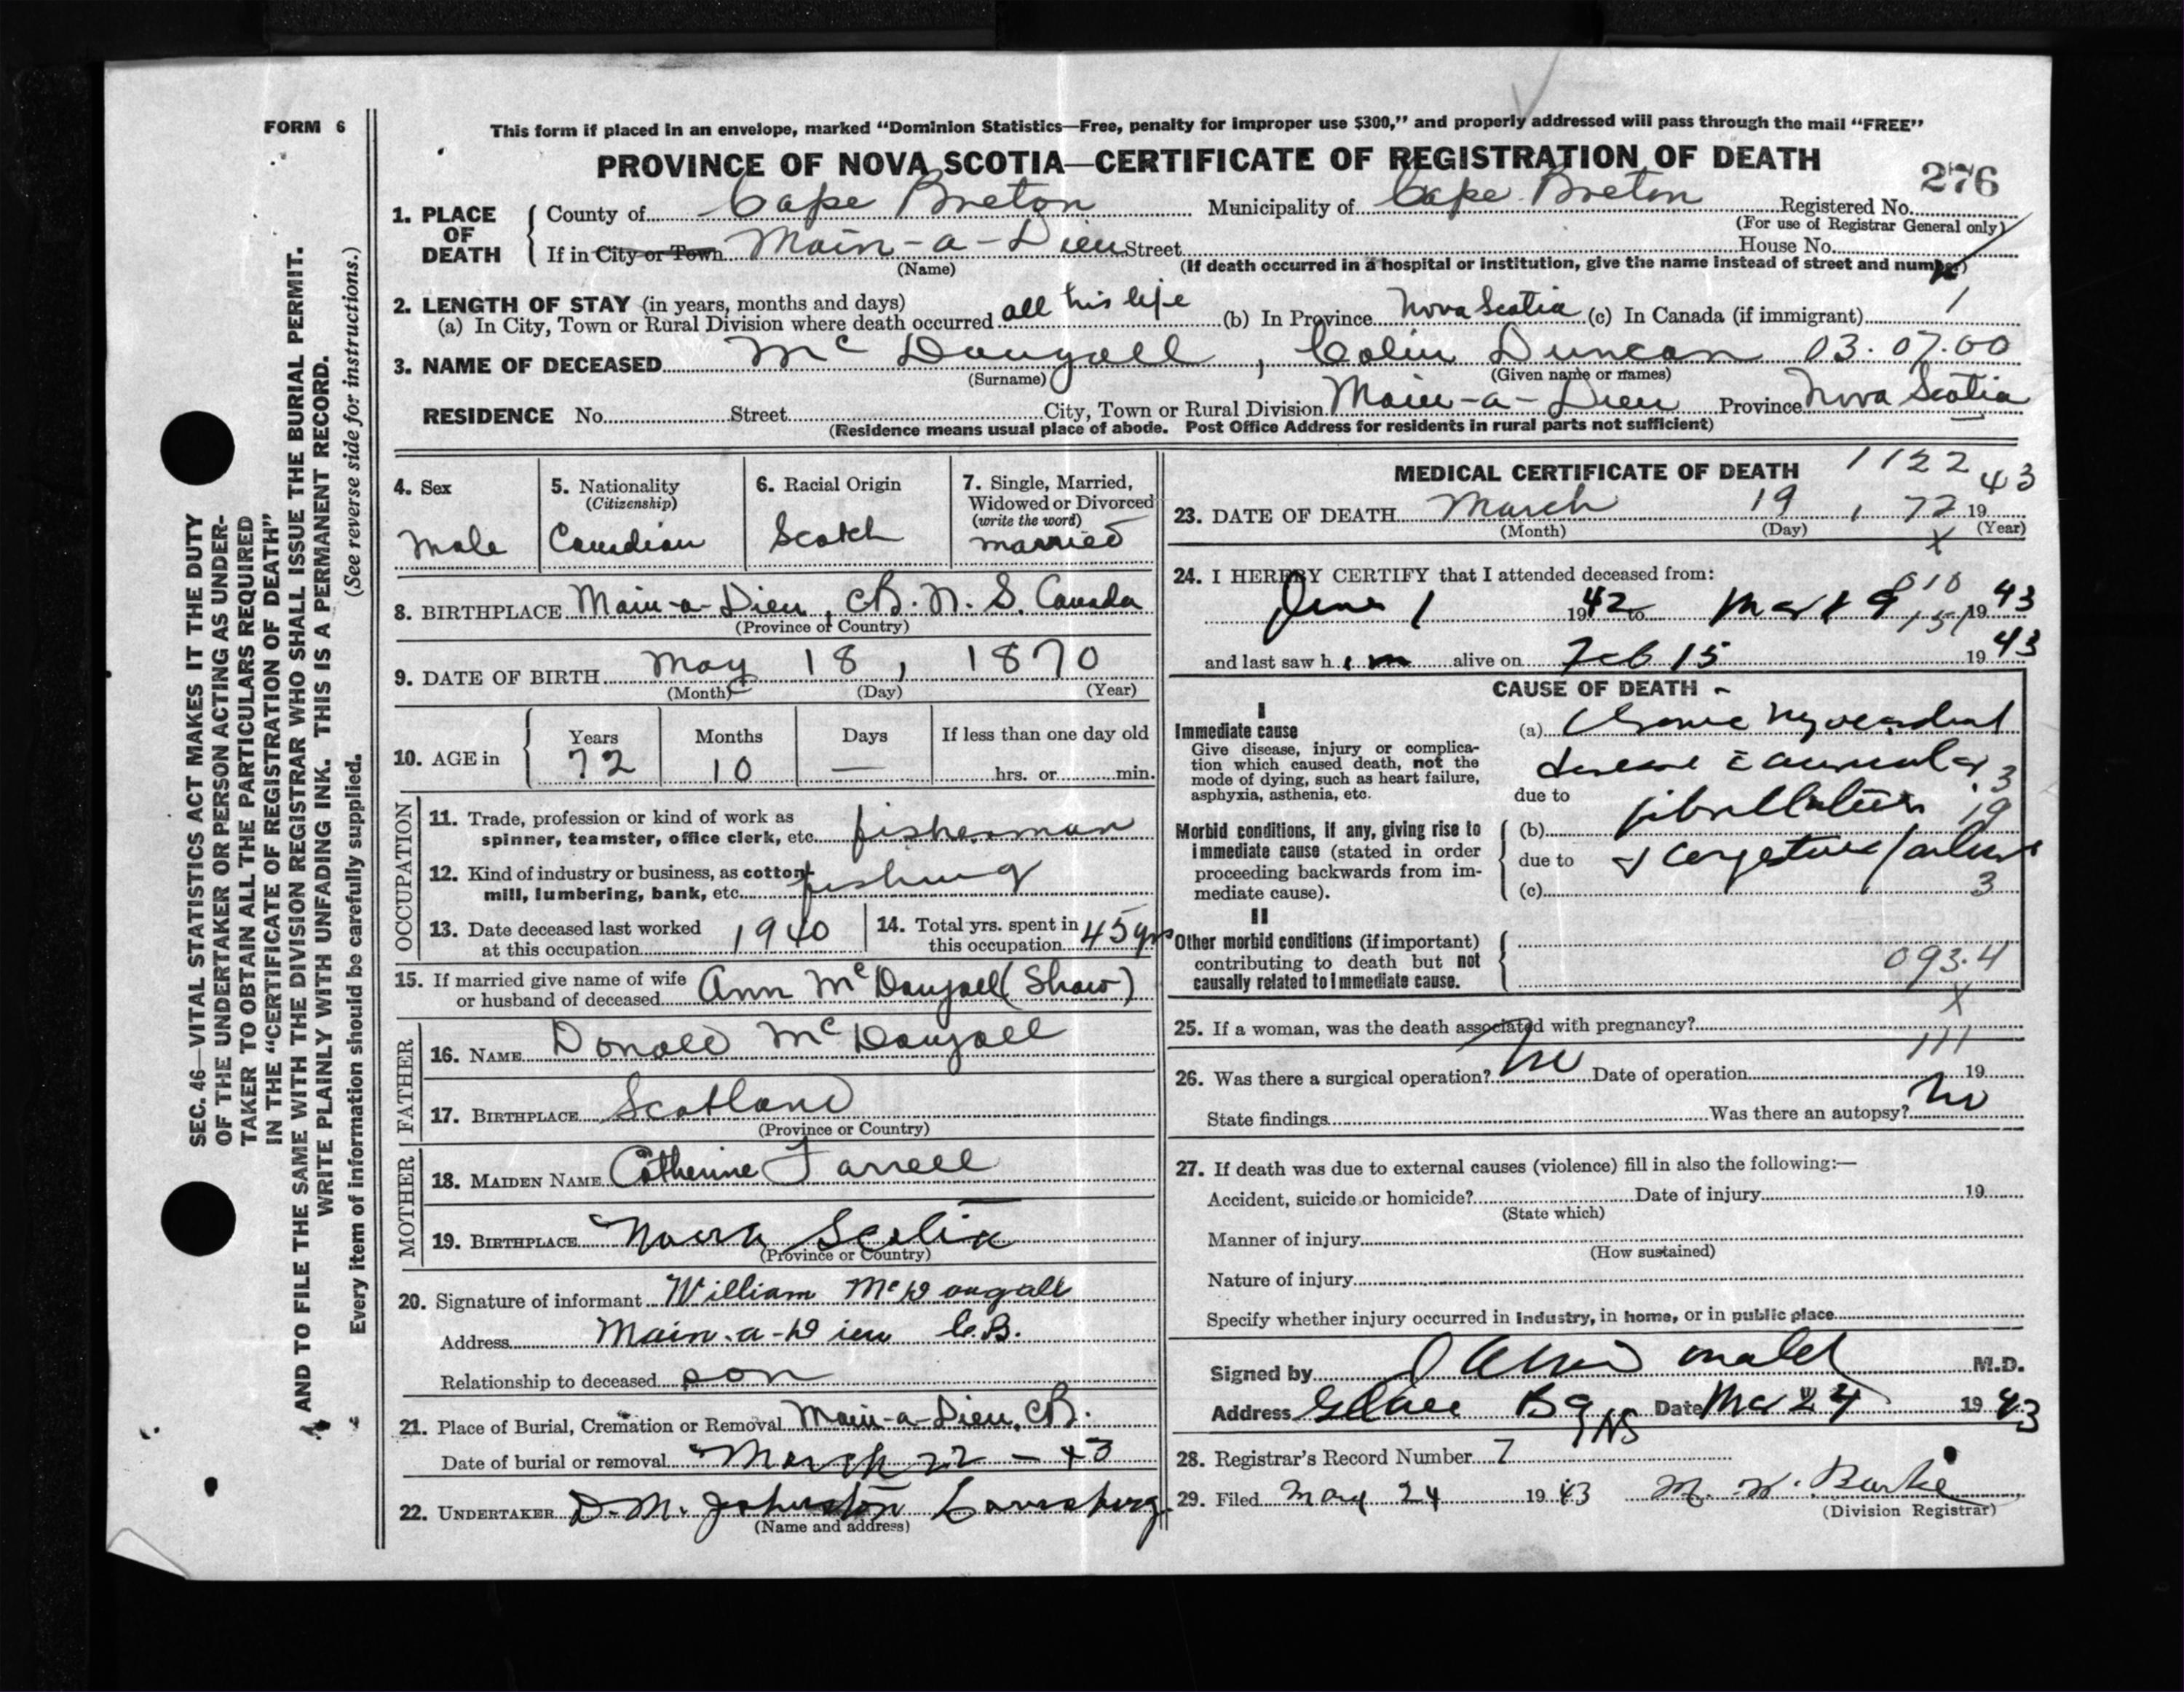 FORM 6
This form if placed in an envelope, marked "Dominion Statistics—Free, penalty for improper use $300," and properly addressed will pass through the mail "FREE"
PROVINCE OF NOVA SCOTIA—CERTIFICATE OF REGISTRATION OF DEATH
276
1. PLACE OF DEATH
County of Cape Breton Municipality of Cape Breton Registered No.
(For use of Registrar General only)
If in City or Town Main-a-Dieu Street House No.
(Name) (If death occurred in a hospital or institution, give the name instead of street and number)
2. LENGTH OF STAY (in years, months and days)
(a) In City, Town or Rural Division where death occurred all his life (b) In Province Nova Scotia (c) In Canada (if immigrant) 1
3. NAME OF DECEASED McDougall, Colin Duncan 03.07.00
(Surname) (Given name or names)
RESIDENCE No. Street City, Town or Rural Division Main-a-Dieu Province Nova Scotia
(Residence means usual place of abode. Post Office Address for residents in rural parts not sufficient)
4. Sex
Male
5. Nationality
(Citizenship)
Canadian
6. Racial Origin
Scotch
7. Single, Married,
Widowed or Divorced
(write the word)
married
8. BIRTHPLACE Main-a-Dieu, C.B. N.S. Canada
(Province or Country)
9. DATE OF BIRTH May 18, 1870
(Month) (Day) (Year)
10. AGE in
Years Months Days If less than one day old
72 10 — hrs. or min.
OCCUPATION
11. Trade, profession or kind of work as
spinner, teamster, office clerk, etc. fisherman
12. Kind of industry or business, as cotton
mill, lumbering, bank, etc. fishing
13. Date deceased last worked
at this occupation 1940
14. Total yrs. spent in
this occupation 45 yrs
15. If married give name of wife
or husband of deceased Ann McDougall (Shaw)
FATHER
16. NAME Donald McDougall
17. BIRTHPLACE Scotland
(Province or Country)
MOTHER
18. MAIDEN NAME Catherine Farrell
19. BIRTHPLACE Nova Scotia
(Province or Country)
20. Signature of informant William McDougall
Address Main-a-Dieu C.B.
Relationship to deceased son
21. Place of Burial, Cremation or Removal Main-a-Dieu, C.B.
Date of burial or removal March 22 - 43
22. UNDERTAKER D. M. Johnston Louisburg
(Name and address)
MEDICAL CERTIFICATE OF DEATH 1122
23. DATE OF DEATH March 19, 72 19 43
(Month) (Day) (Year)
X
24. I HEREBY CERTIFY that I attended deceased from:
010
June 1 1942 to Mar 19 1943
151
and last saw him alive on Feb 15 1943
CAUSE OF DEATH
I
Immediate cause
Give disease, injury or complication which caused death, not the mode of dying, such as heart failure, asphyxia, asthenia, etc.
(a) Chronic Myocardial
disease c̄ auricular 3
due to
Morbid conditions, if any, giving rise to immediate cause (stated in order proceeding backwards from immediate cause).
(b) fibrillation 19
due to & congestive failure
(c) 3
II
Other morbid conditions (if important) contributing to death but not causally related to immediate cause.
093.4
X
25. If a woman, was the death associated with pregnancy?
111
26. Was there a surgical operation? no Date of operation 19
State findings Was there an autopsy? no
27. If death was due to external causes (violence) fill in also the following:—
Accident, suicide or homicide? Date of injury 19
(State which)
Manner of injury
(How sustained)
Nature of injury
Specify whether injury occurred in industry, in home, or in public place
Signed by M.D.
Address Glace Bay NS Date Mar 24 1943
28. Registrar's Record Number 7
29. Filed May 24 1943 M. W. Burke
(Division Registrar)
SEC. 46—VITAL STATISTICS ACT MAKES IT THE DUTY
OF THE UNDERTAKER OR PERSON ACTING AS UNDER-
TAKER TO OBTAIN ALL THE PARTICULARS REQUIRED
IN THE "CERTIFICATE OF REGISTRATION OF DEATH"
AND TO FILE THE SAME WITH THE DIVISION REGISTRAR WHO SHALL ISSUE THE BURIAL PERMIT.
WRITE PLAINLY WITH UNFADING INK. THIS IS A PERMANENT RECORD.
Every item of information should be carefully supplied. (See reverse side for instructions.)